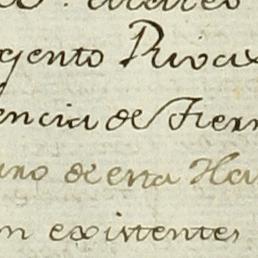 gento Rivax
encia de Fier
uno de esta Ha
n existentes